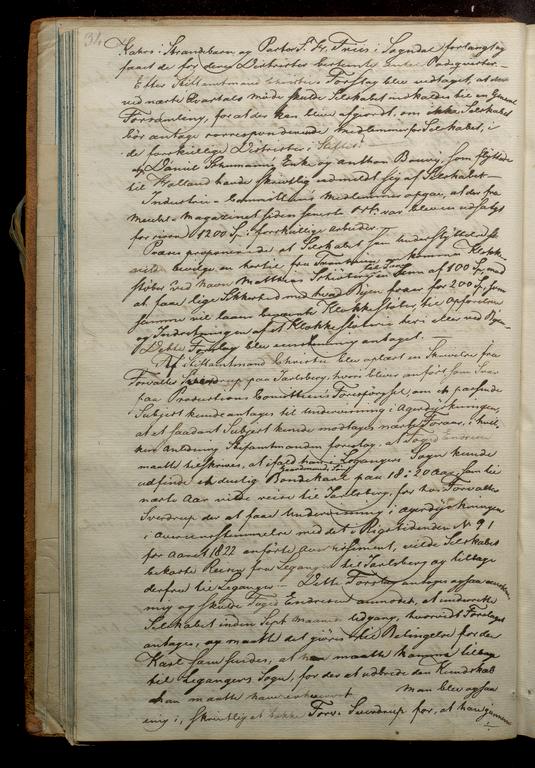 34
i Strandebarm og Pastor S. Fr. Friis i Sogndal forlangtes
faaet de for deres Districter bestemte Podeqvister.
Efter Stiftamtmand Christies Forslag blev vedtaget, at der
ved næste Qvartals møde skulde Selskabet indkaldes til en General
Forsamling, for at der kan blive afgiordt, om Selskabet
bør antage corresponderende Medlemmer for Selskabet, i
de forskiellige Districter i Stiftet.
Daniel Schumanns Enke og Anthon, som flyttede
til Holland havde skriftlig udmeldt sig af Selskabet
Industrie-Committeens Medlemmer opgav, at der fra
Magazinet siden var bleven udsalgt
for circa 1200 Sp. i forskiellige arbeider.
Præses proponerede at Selskabet som Understøttelse
vilde bevilge en hertil fra kommen Klokke-
støber ved Navn Matthias en Sum af 100 Sp. mod
at faae lige Sikkerhed med hvad Byen faaer for 200 Sp. som
samme vil laane Klokkestøber, til Opførelse
og Indretningen af et Klokkestøberie her i eller ved Byen
Dette Forslag blev eenstemmig antaget.
Af Stiftamtmand Christie blev oplæst en Skrivelse fra
Forvalter Sverdrup paa Jarlsberg, hvori blev anført som Svar
paa Productions Committeens Forespørgsel, om et passende
Subject kunde antages til Underviisning i Agerdyrkningen,
at et saadant Subject kunde modtages næste Foraar, i hvil-
ken Anledning Stiftamtmanden foreslog, at Foged Endresen
maatte tilskrives, at ifald han i Leganger Sogn kunde
udfinde en duelig Bondekarl paa 18 a 20 Aar, som til
næste Aar vilde reise til Jarlsberg, for hos Forvalter
Sverdrup der at faae Underviisning i agerdyrkningen
i overeensstemmelse med det i Rigstidenden N 91
for Aaret 1822 anførte Avertissement, vilde Selskabet
bekoste Reisen fra Leganger til Jarlsberg og tilbage
derfra til Leganger – Dette Forslag antoges ogsaa eenstem-
mig og skulde Foged Endresen anmodes, at underrette
Selskabet inden Sept. maaneds Udgang, hvorvidt Forslaget
antages, og maatte det giøres til Betingelse for den
Karl som findes, at han maatte komme tilbage
til Legangers Sogn, for der at udbrede den Kundskab
han maatte have erhvervet Man blev ogsaa
enig i, skriftlig at takke Forv. Sverdrup for, at han